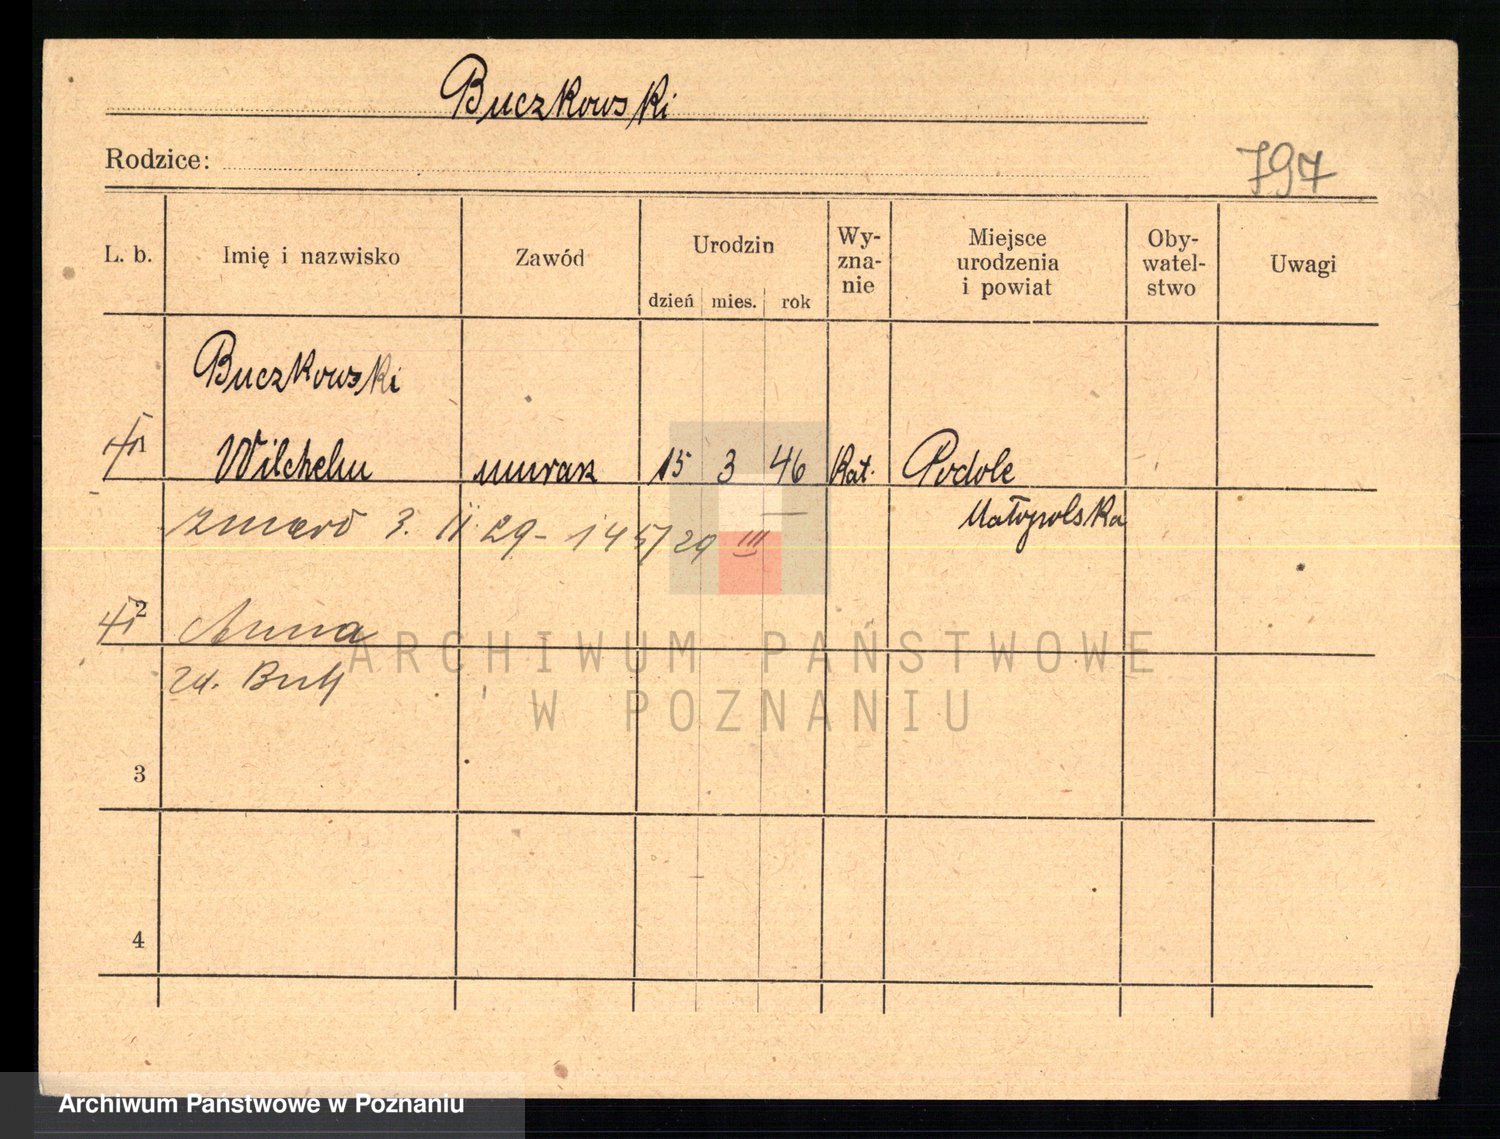 Buczkowski
Rodzice:
797
L. b.
Imię i nazwisko
Zawód
Urodzin
dzień
mies.
rok
Wy-
zna-
nie
Miejsce
urodzenia
i powiat
Oby-
watel-
stwo
Uwagi
Buczkowski
1 Wilchelm murarz 15 3 46 Kat. Podole
Małopolska
zmarł 3. II 29 - 145/29 III
2 Anna
zd.
3
4
ARCHIWUM PAŃSTWOWE
W POZNANIU
Archiwum Państwowe w Poznaniu